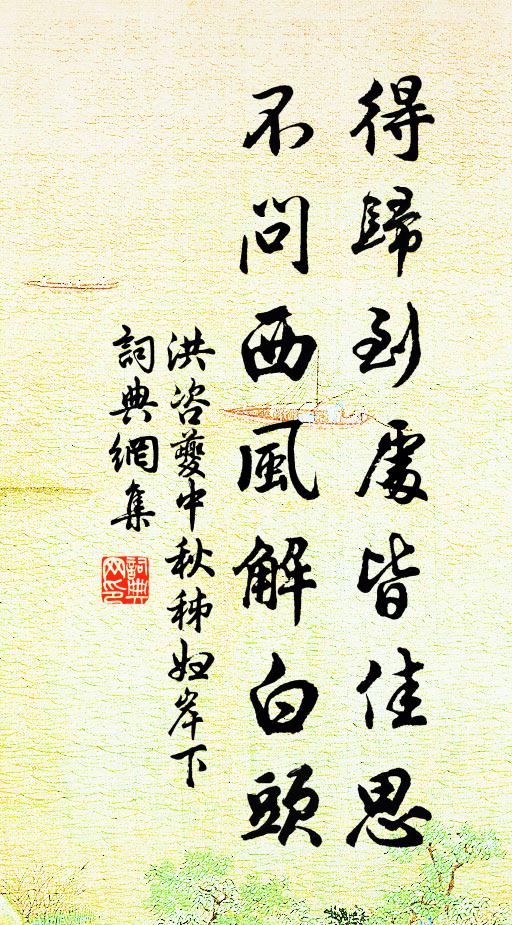 得歸到處皆佳思
不問西風解白頭
洪咨夔中秋秭歸岸下
詞典網集
詞典
网印